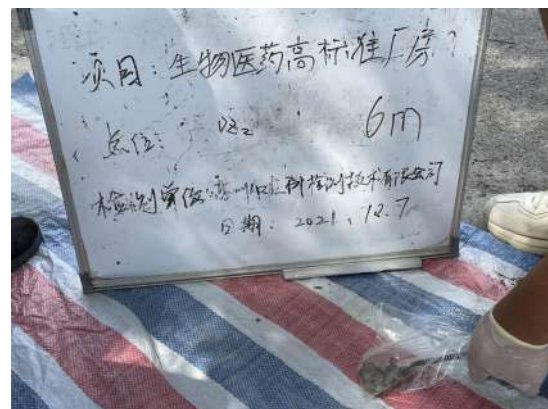 项目：生物医药高标准厂房
点位： 6m
检测单位：检测技术有限公司
日期：2021.12.7